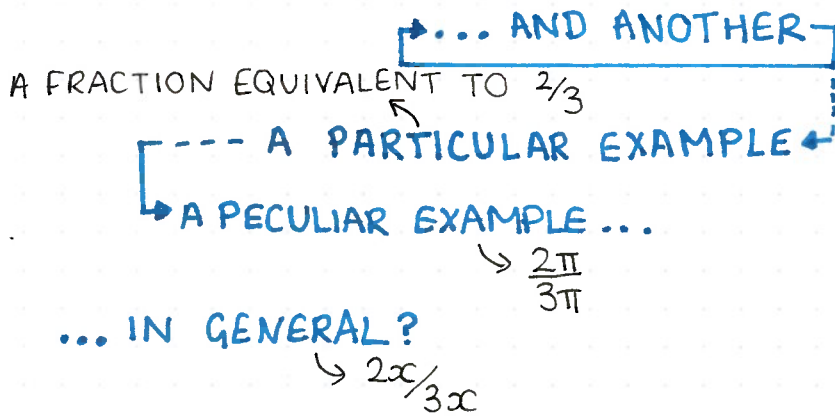 ... AND ANOTHER
A FRACTION EQUIVALENT TO 2/3
A PARTICULAR EXAMPLE
A PECULIAR EXAMPLE ...
2π
3π
... IN GENERAL?
2x/3x